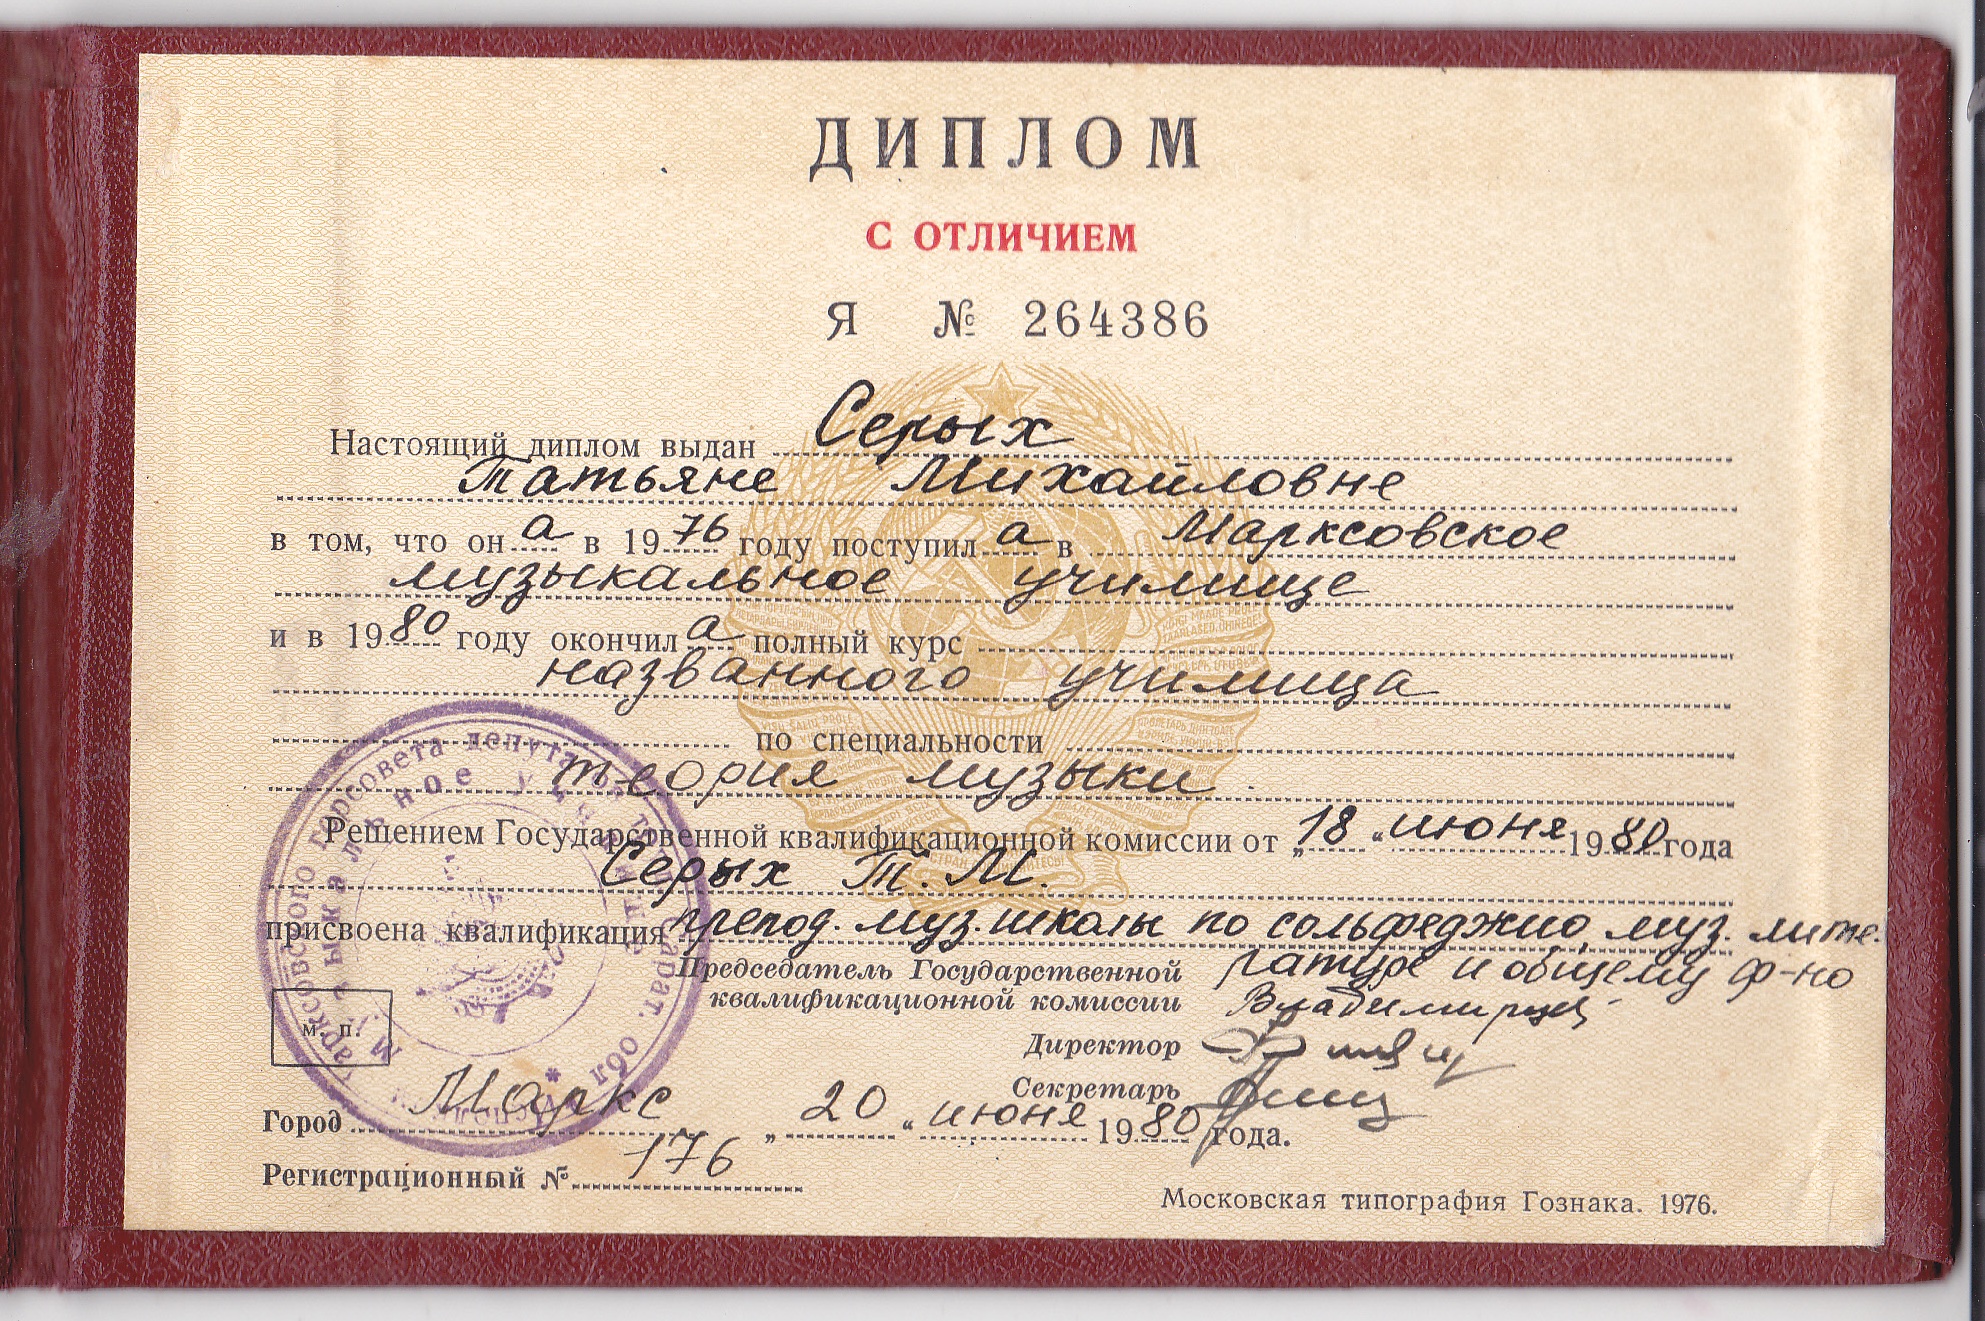 ДИПЛОМ
С ОТЛИЧИЕМ
Я № 264386
Настоящий диплом выдан Серых
Татьяне Михайловне
в том, что он а в 1976 году поступил а в Марксовское
музыкальное училище
и в 1980 году окончил а полный курс
названного училища
по специальности
теория музыки.
Решением Государственной квалификационной комиссии от „18“ июня 1980 года
Серых Т. М.
присвоена квалификация препод. муз. школы по сольфеджио, муз. лите-
ратуре и общему ф-но
Председатель Государственной
квалификационной комиссии
Директор
Секретарь
м. п.
Город Маркс „20“ июня 1980 года.
Регистрационный № 176
Московская типография Гознака. 1976.